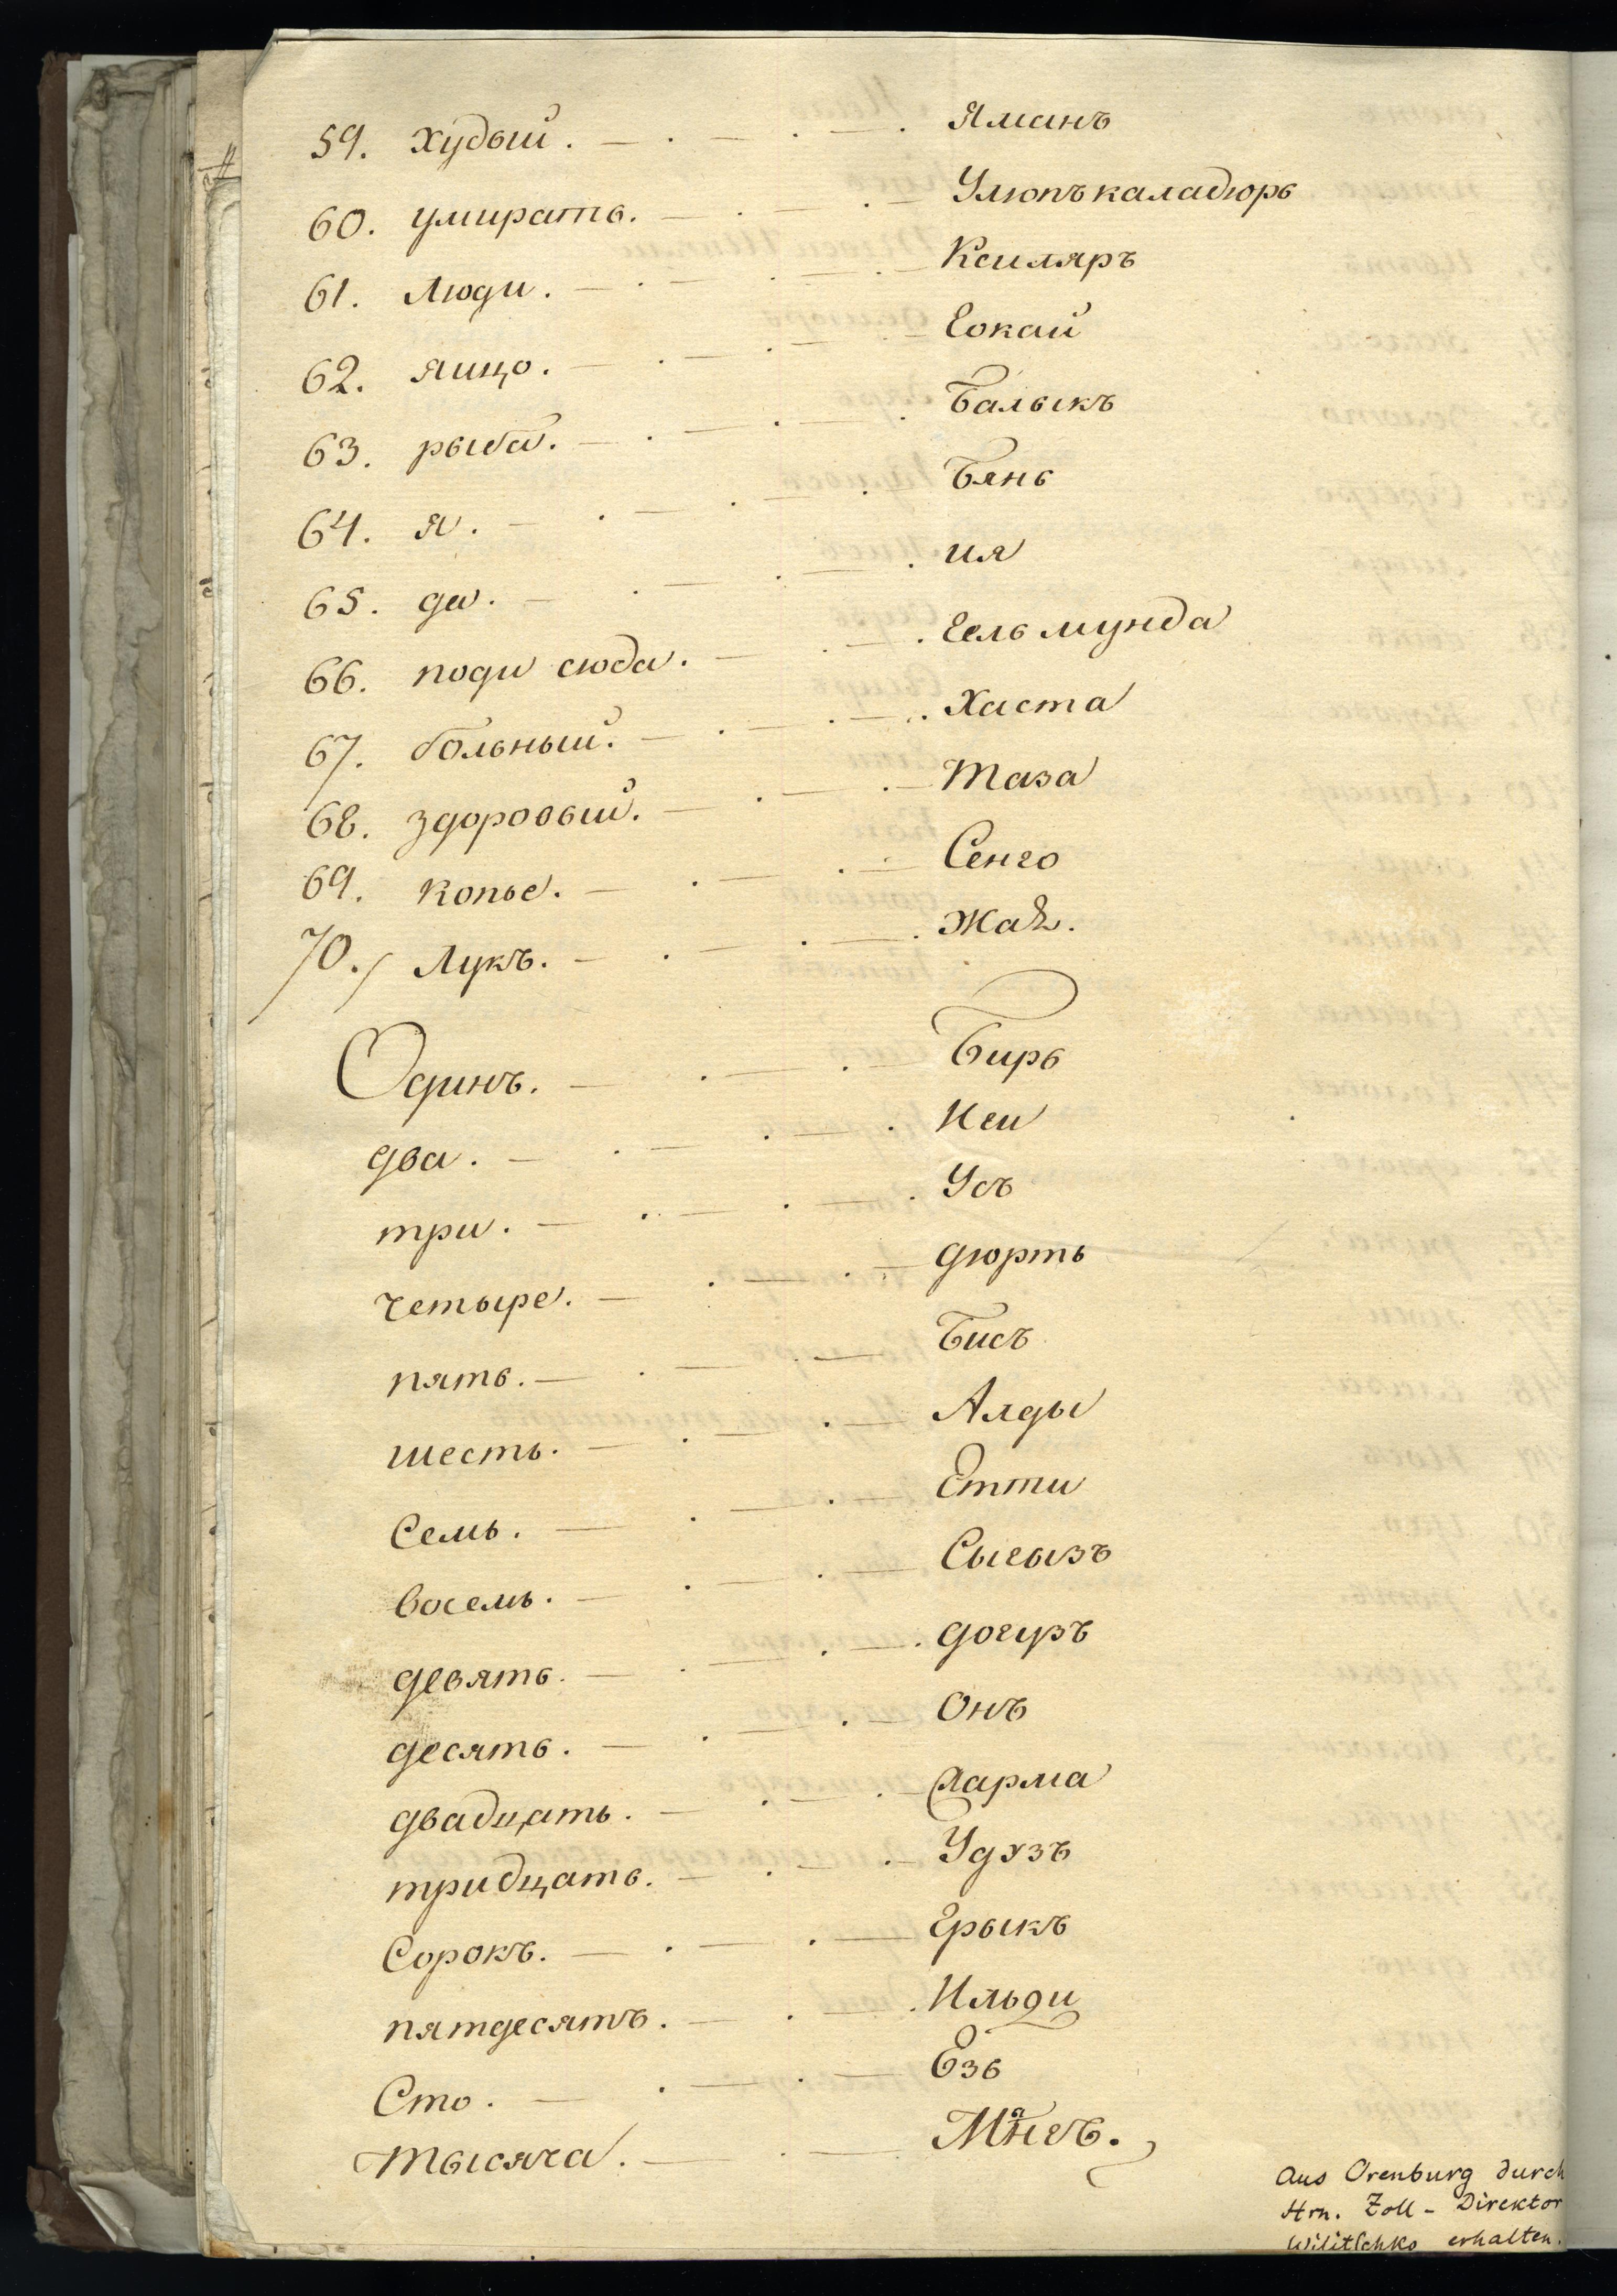 59. худый. — . — . — . Яманъ
60. умирать. — . — . — Улюпъ каладюрь
61. Люди. — . — . — . — Ксиляръ
62. яицо. — . — . — . — Еокай
63. рыба. — . — . — . Балыкъ
64. я. — . — . — . Бянь
65. да. — . — . — . ия
66. поди сюда. — . — . Еель мунда
67. больный. — . — . — . Хаста
68. здоровый. — . — . — Таза
69. копье. — . — . — Сенго
70. Лукъ. — . — . — . Жаѣ.
Одинъ. — . — . — Бирь
два. — . — . — . Исси
три. — . — . — . Усъ
четыре. — . — . — дюрть
пять. — . — . — Бисъ
шесть. — . — . — Алды
Семь. — . — . — Етти
восемь. — . — . — Сыгызъ
девять. — . — . — . догузъ
десять. — . — . — Онъ
двадцать. — . — . — Ягарма
тридцать. — . — . — Удузъ
Сорокъ. — . — . — Ерыкъ
пятдесятъ. — . — . Ильди
Сто. — . — . — Езь
Тысяча. — . — Мѣнгъ.
Aus Orenburg durch
Hrn. Zoll-Direktor
Wilitschko erhalten.